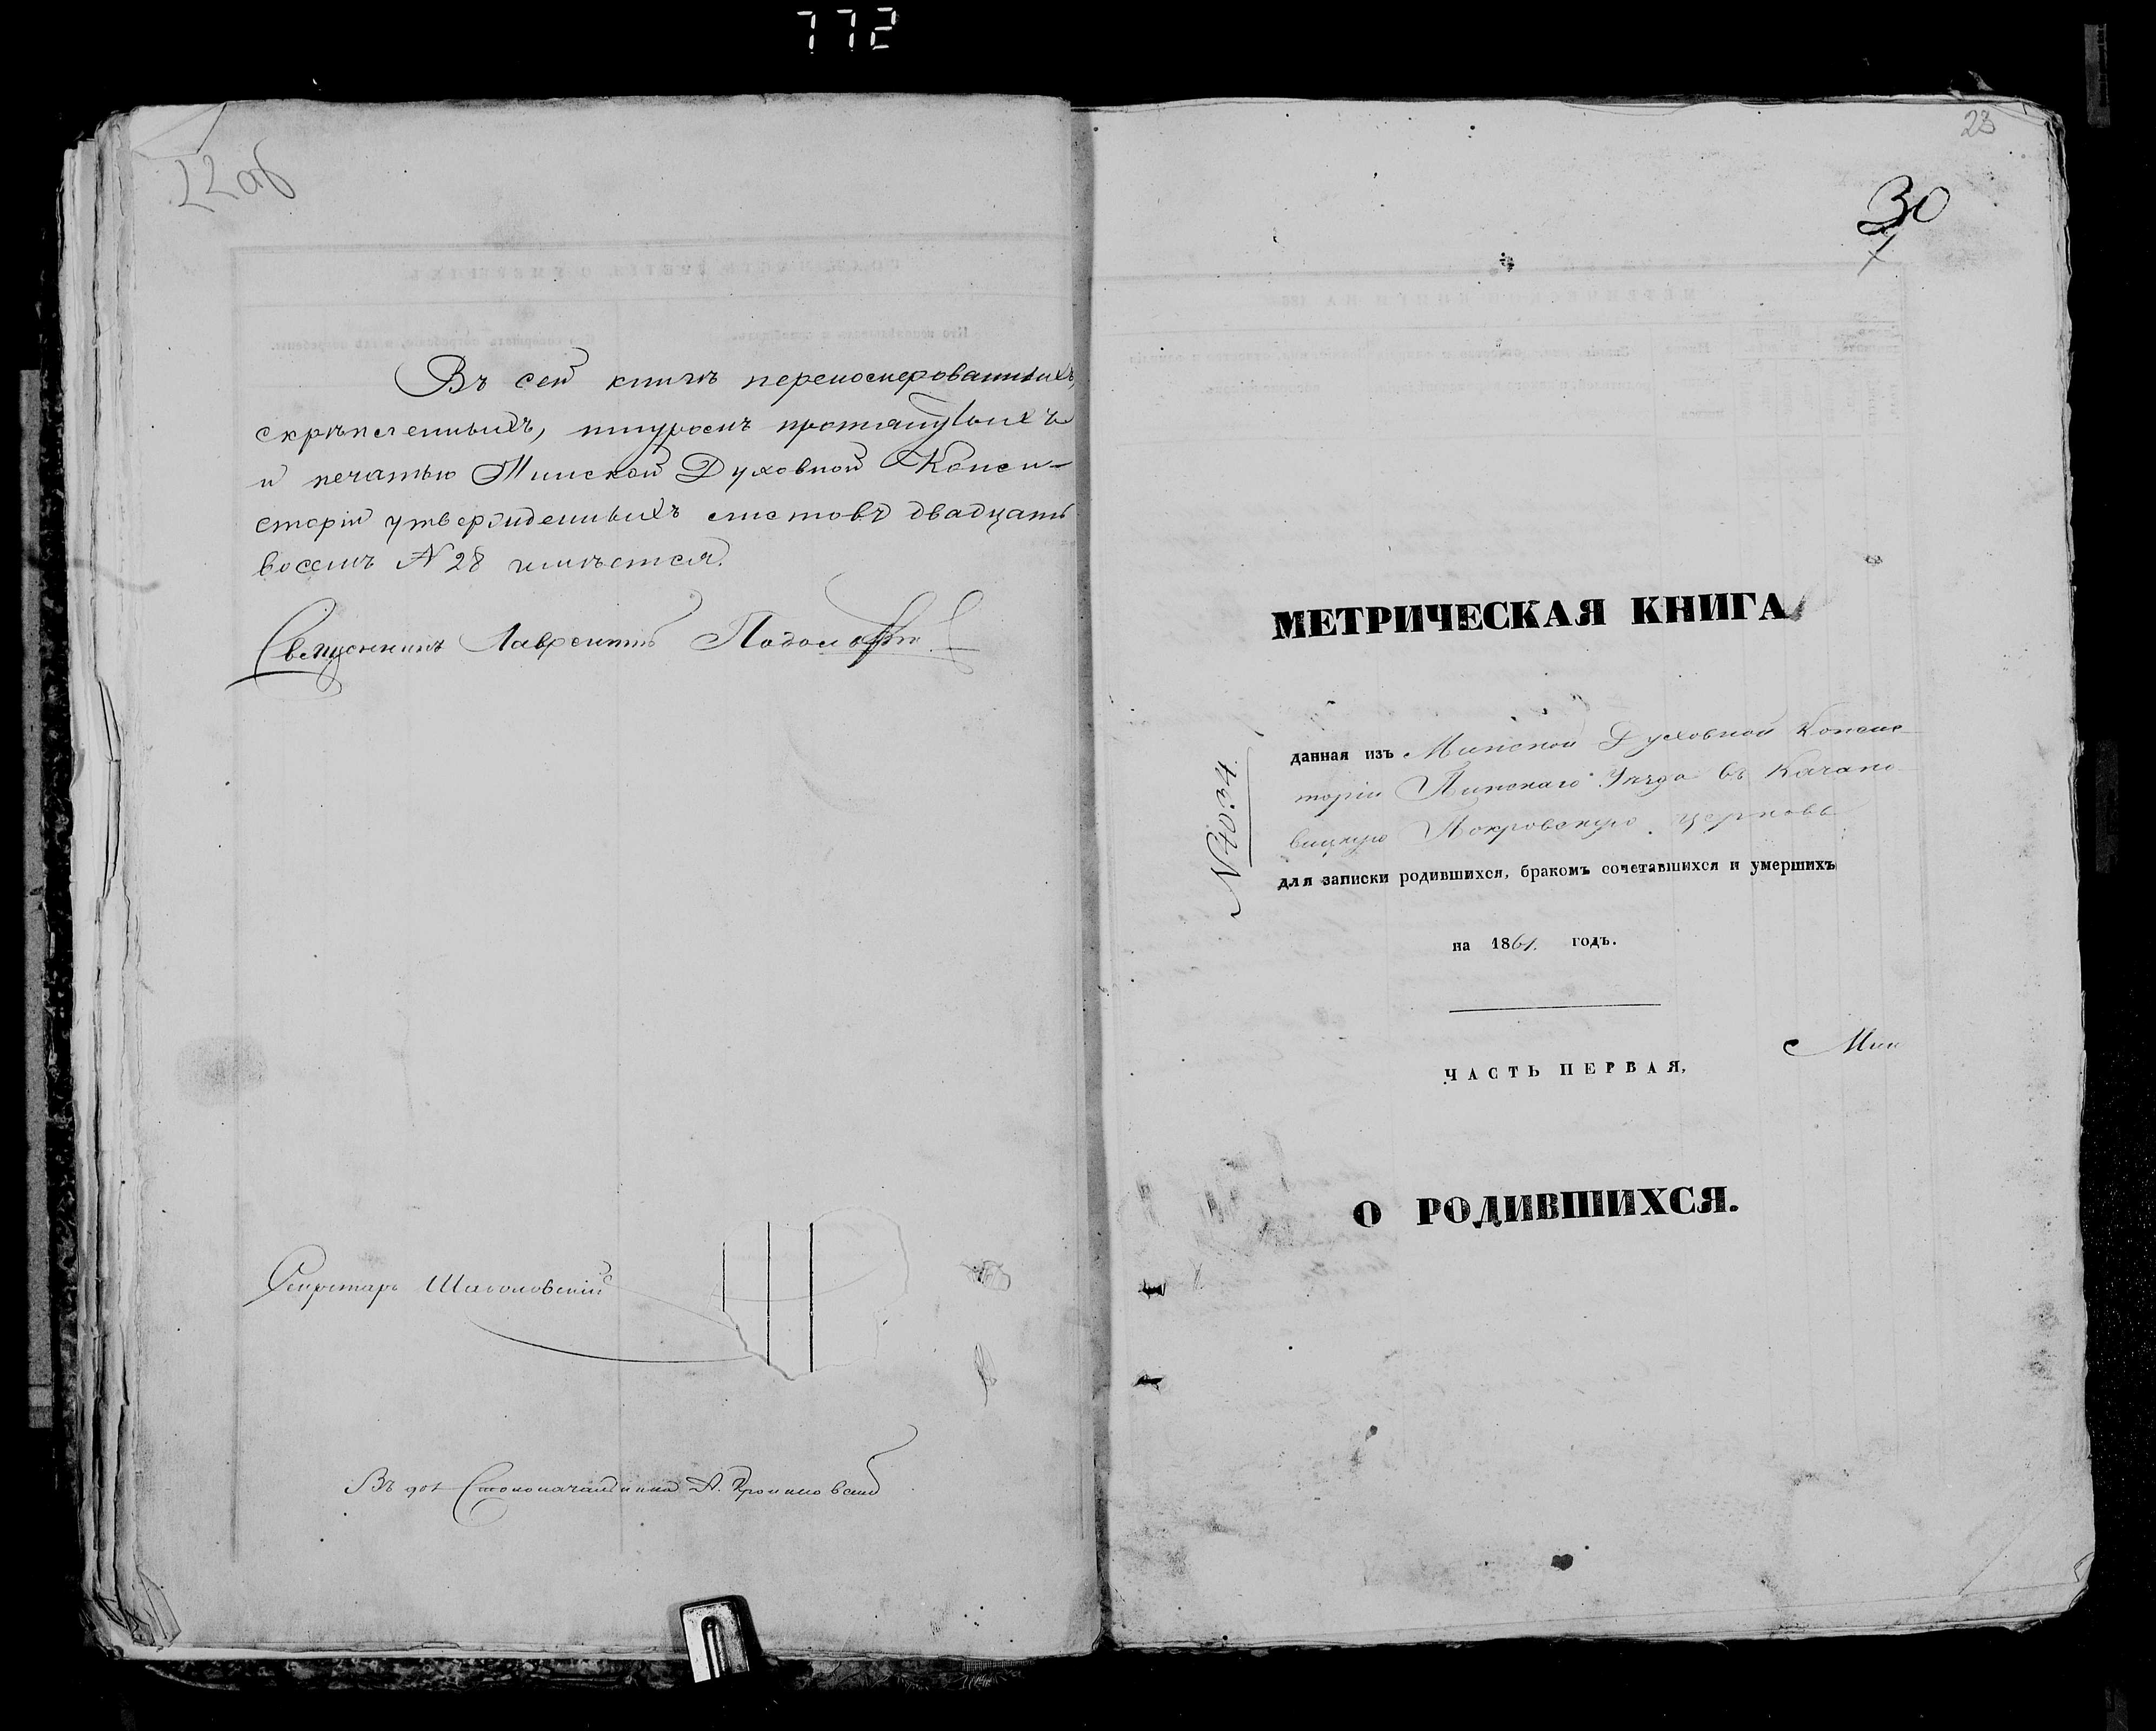 772
22об
Въ сей книгѣ переномерованныхъ,
скрѣпленныхъ, шнуромъ протянутыхъ
и печатью Минской Духовной Конси-
сторіи утвержденныхъ листовъ двадцать
восемь N 28 имѣется.
Священникъ Лаврентій
Секретарь
Въ дол Столоначальника А.
23
30
МЕТРИЧЕСКАЯ КНИГА
N 4034.
данная изъ Минской Духовной Консис-
торіи Пинскаго Уѣзда въ Качано-
вицкую Покровскую церковь
для записки родившихся, бракомъ сочетавшихся и умершихъ
на 1861. годъ.
Мин
ЧАСТЬ ПЕРВАЯ,
О РОДИВШИХСЯ.